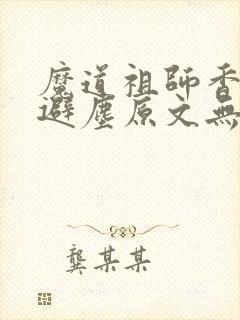 魔道祖師香
避塵原文無
龔某某